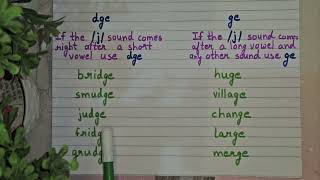 dge
If the /j/ sound comes
right after a short
vowel use dge
bridge
smudge
judge
fridg
grudg
ge
If the /j/ sound com
after a long vowel and
any other sound use ge
huge
village
change
large
merge